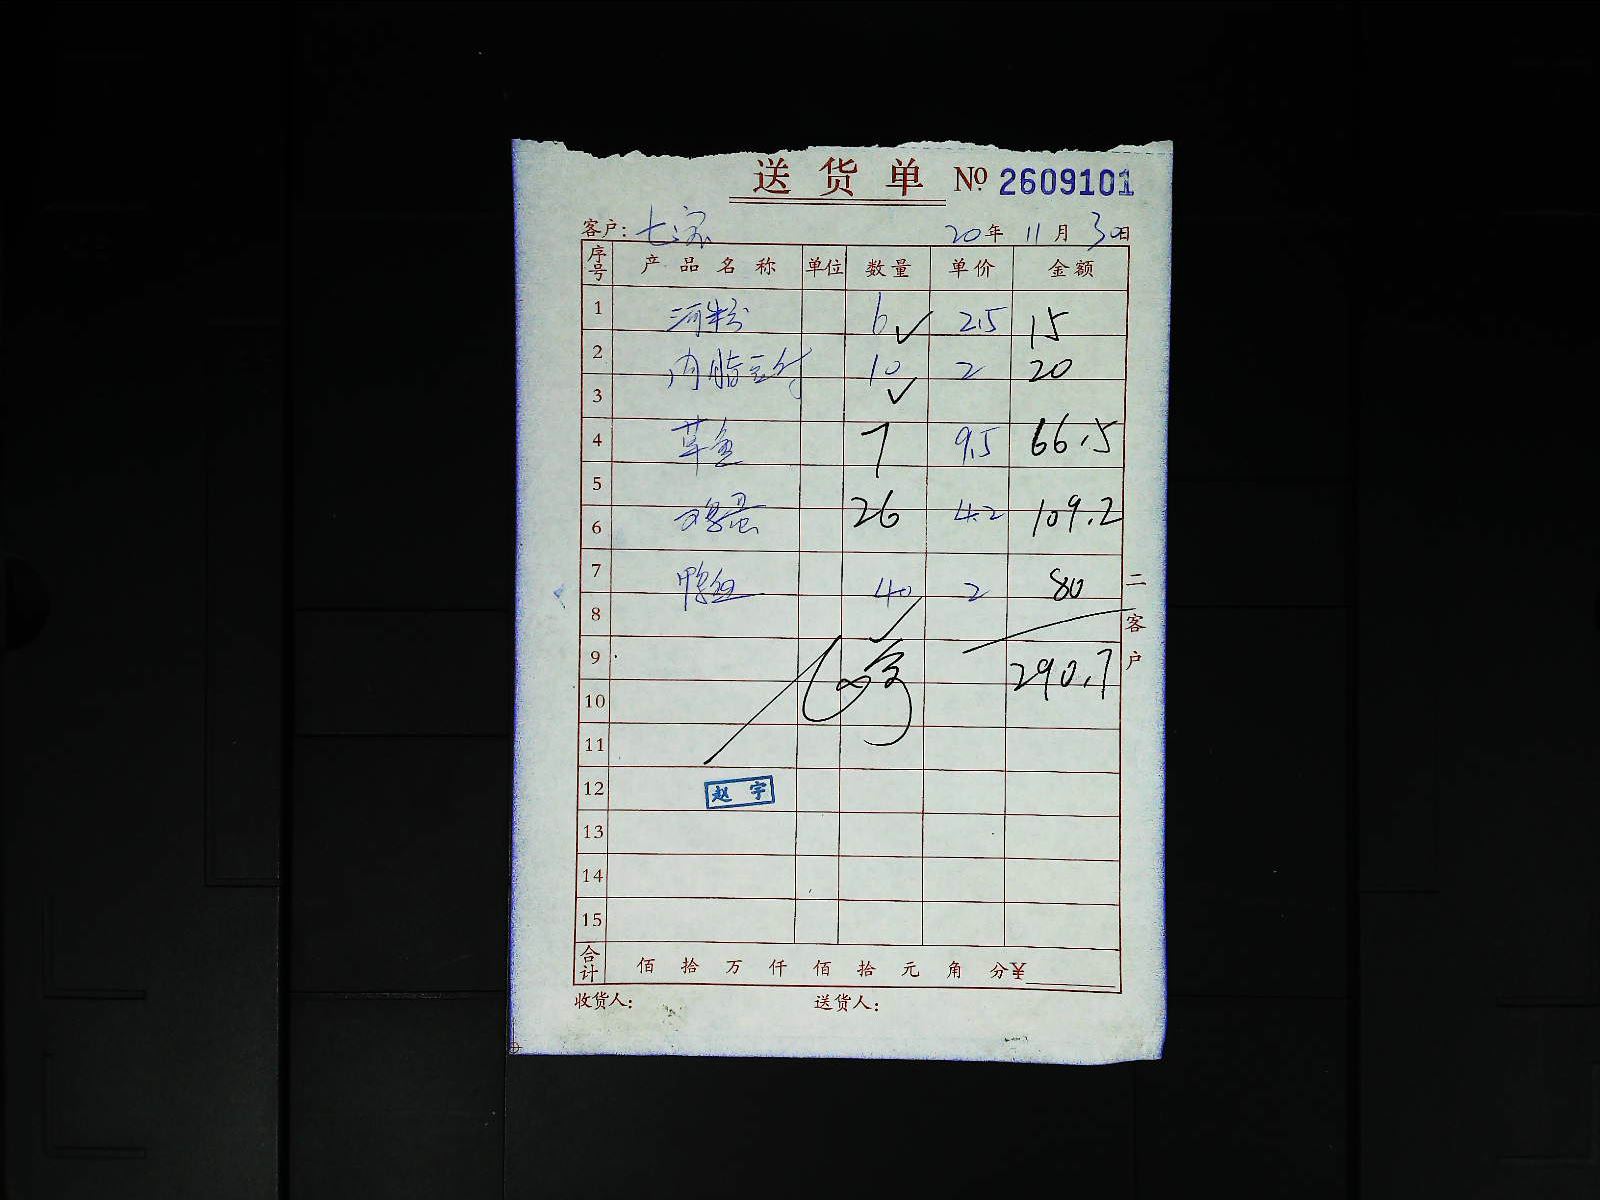 送货单 № 2609101
客户: 20年11月30日
序号 产品名称 单位 数量 单价 金额
1 河粉 6 2.5 15
2 内脂豆付 10 2 20
3
4 草鱼 7 9.5 66.5
5
6 鸡蛋 26 4.2 109.2
7 鸭血 40 2 80
8
9 290.7
10
11
12 赵宇
13
14
15
合计 佰拾万仟佰拾元角分¥
收货人: 送货人:
二客户